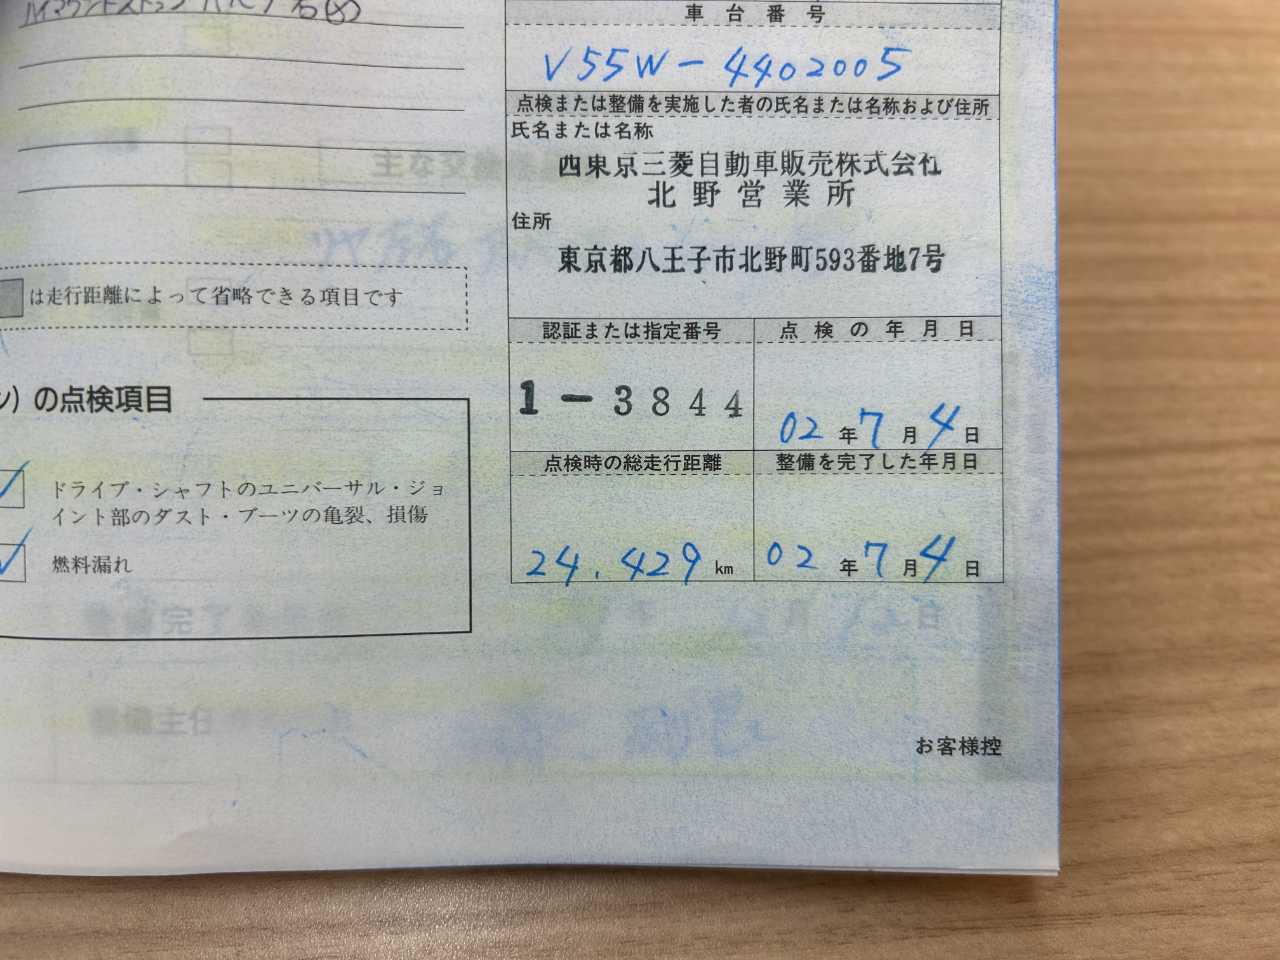 車台番号
V55W-4402005
点検または整備を実施した者の氏名または名称および住所
氏名または名称
西東京三菱自動車販売株式会社
北野営業所
住所
東京都八王子市北野町593番地7号
は走行距離によって省略できる項目です
認証または指定番号
点検の年月日
1-3844
02年7月4日
点検時の総走行距離
整備を完了した年月日
24.429km
02年7月4日
の点検項目
ドライブ・シャフトのユニバーサル・ジョ
イント部のダスト・ブーツの亀裂、損傷
燃料漏れ
お客様控